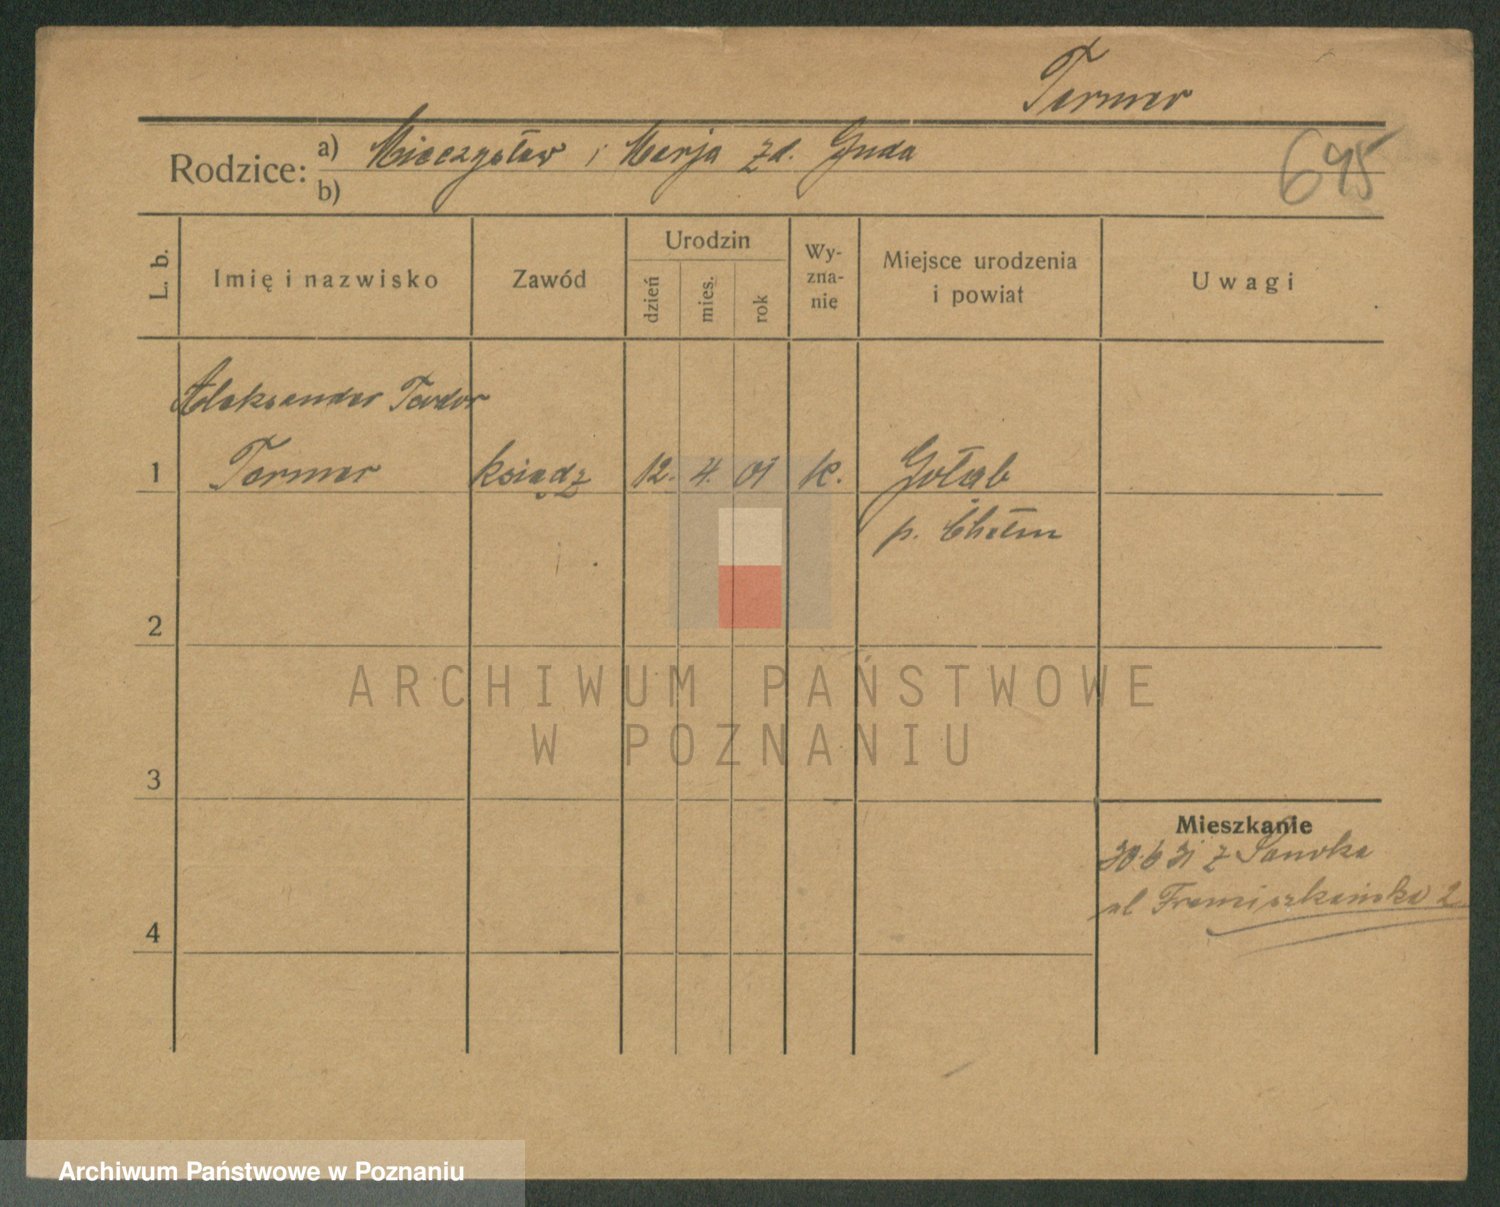 Termer
Rodzice: a) Mieczysław i Marja zd. Guda
b)
695
L. b.
Imię i nazwisko
Zawód
Urodzin
dzień
mies.
rok
Wy-
zna-
nie
Miejsce urodzenia
i powiat
Uwagi
Aleksander Teodor
1 Termer ksiądz 12. 4. 01 k. Gołąb
p. Chełm
2
3
4
Mieszkanie
30.6 31 z Sanoka
ul Franciszkańska 2
ARCHIWUM PAŃSTWOWE
W POZNANIU
Archiwum Państwowe w Poznaniu